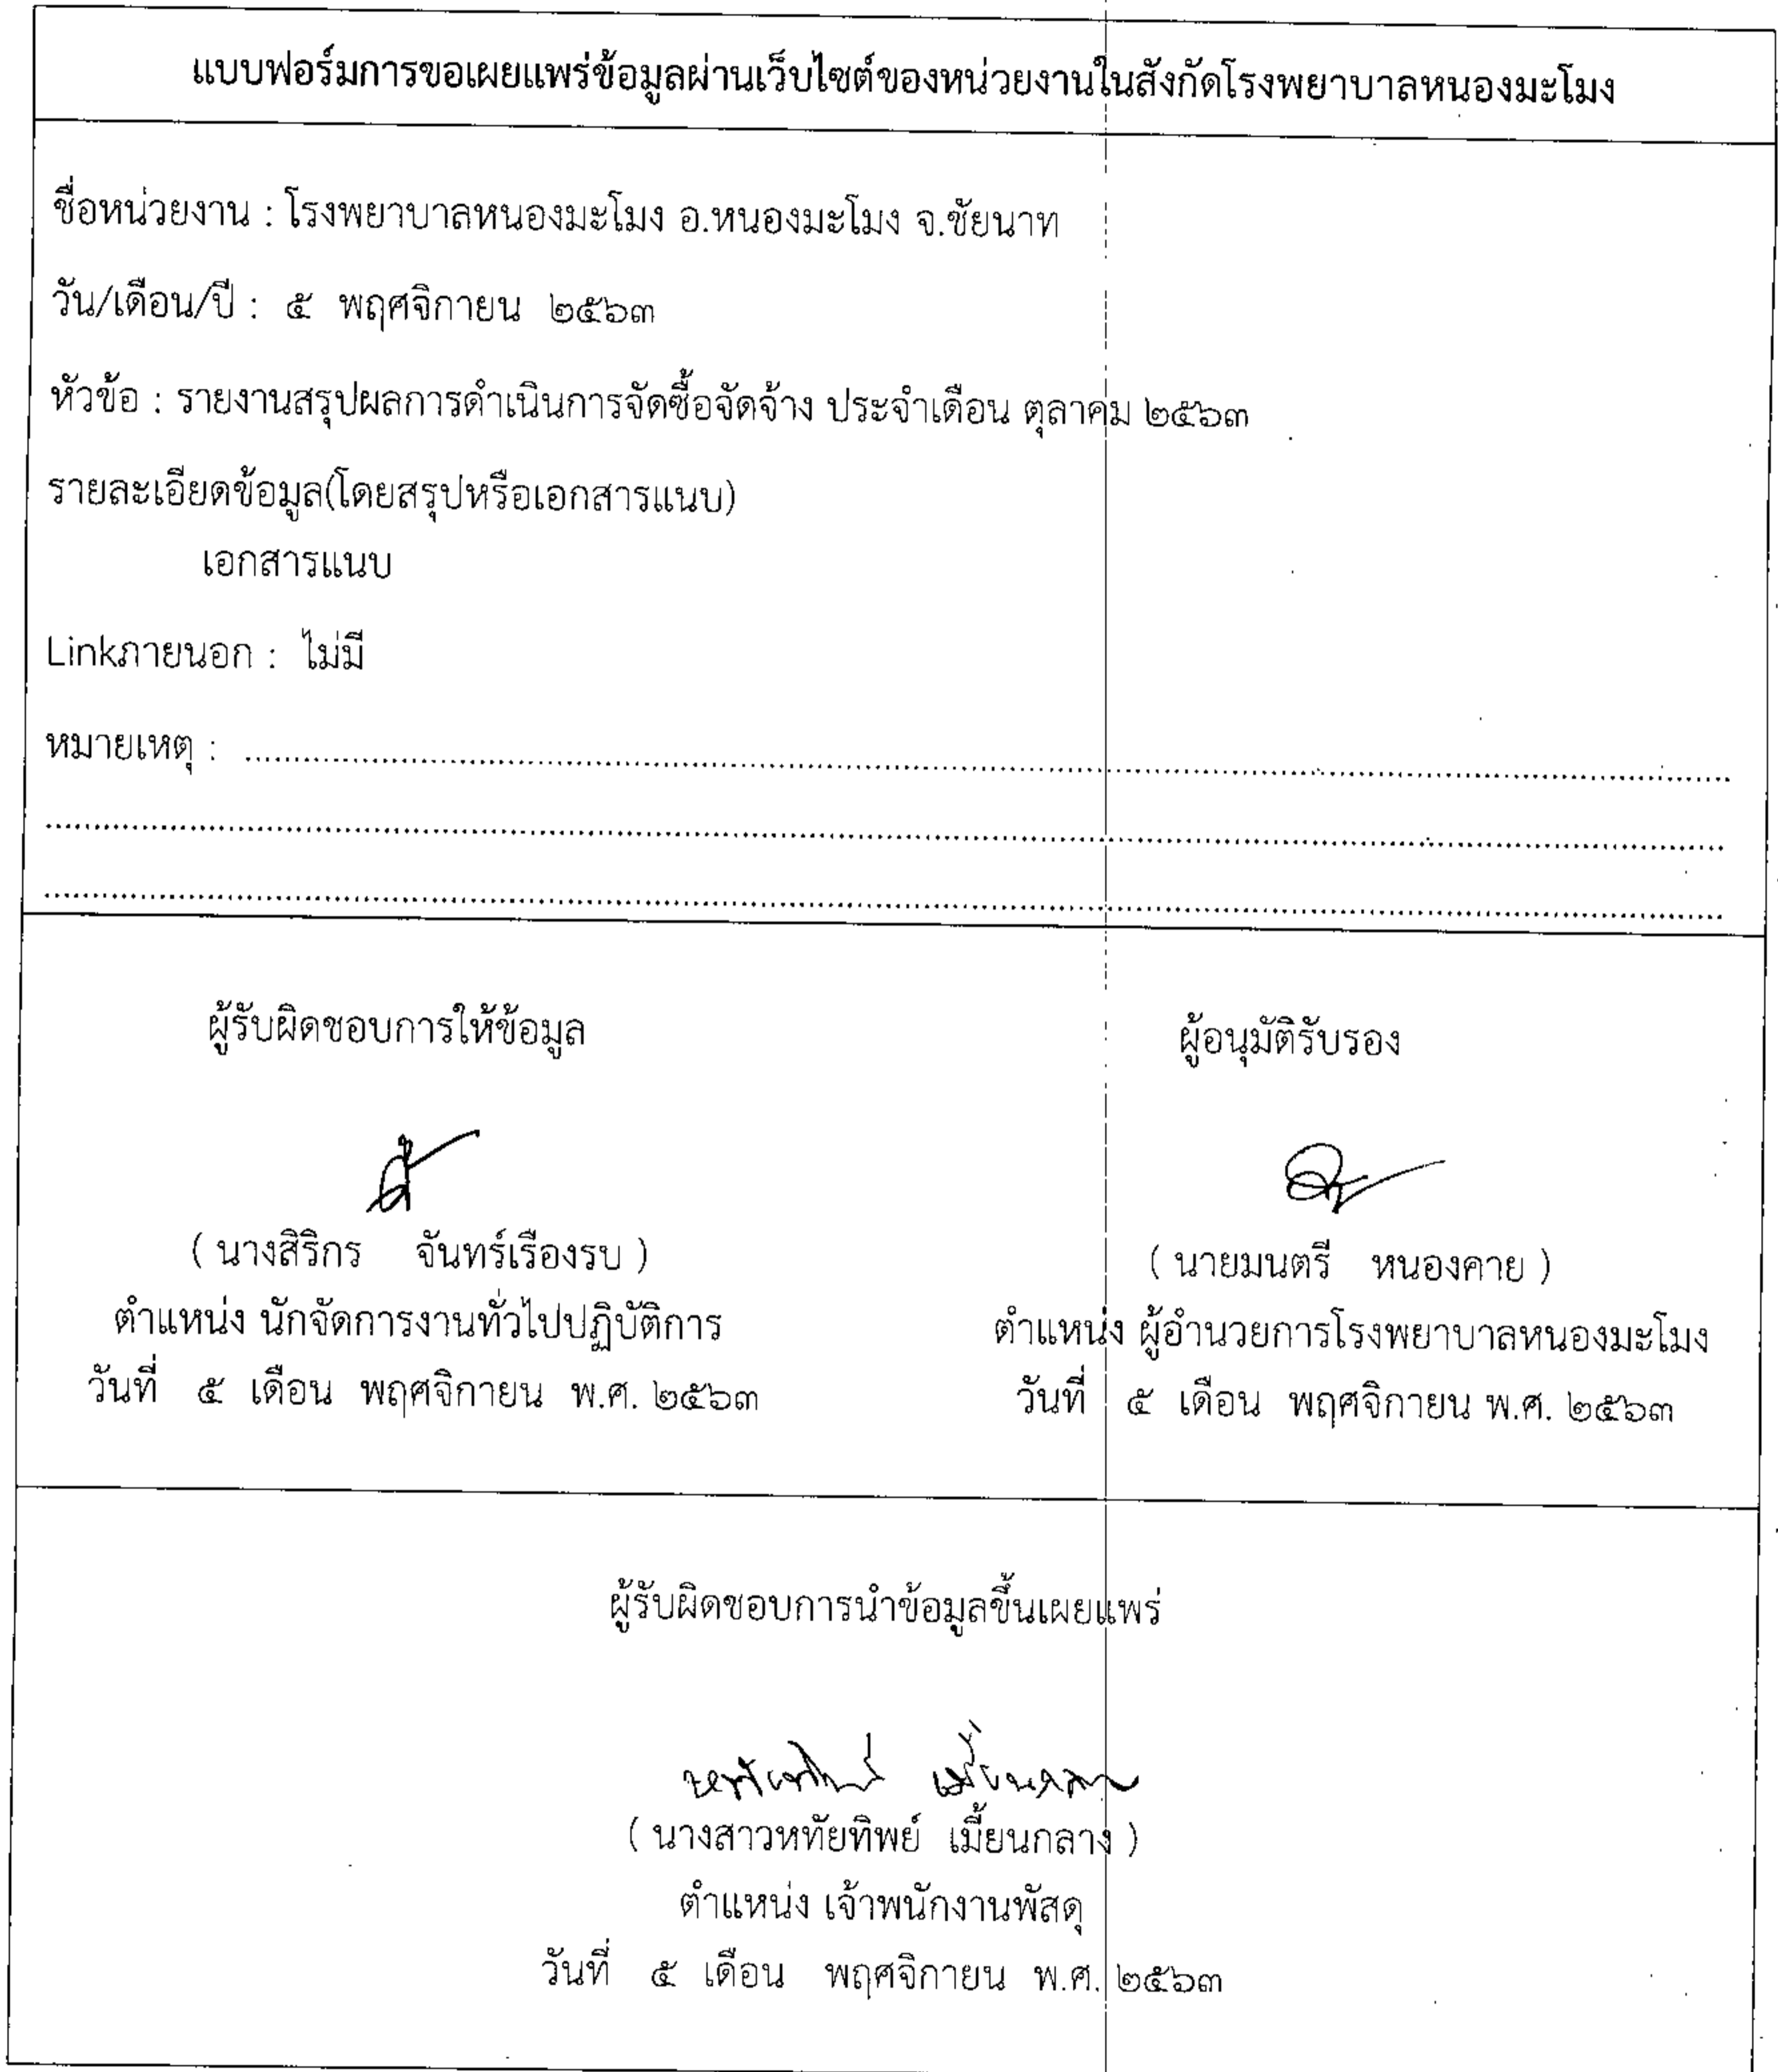 แบบฟอร์มการขอเผยแพร่ข้อมูลผ่านเว็บไซต์ของหน่วยงานในสังกัดโรงพยาบาลหนองมะโมง
ชื่อหน่วยงาน : โรงพยาบาลหนองมะโมง อ.หนองมะโมง จ.ชัยนาท
วัน/เดือน/ปี : ๕ พฤศจิกายน ๒๕๖๓
หัวข้อ : รายงานสรุปผลการดำเนินการจัดซื้อจัดจ้าง ประจำเดือน ตุลาคม ๒๕๖๓
รายละเอียดข้อมูล(โดยสรุปหรือเอกสารแนบ)
เอกสารแนบ
Linkภายนอก : ไม่มี
หมายเหตุ :
ผู้รับผิดชอบการให้ข้อมูล
( นางสิริกร จันทร์เรืองรบ )
ตำแหน่ง นักจัดการงานทั่วไปปฏิบัติการ
วันที่ ๕ เดือน พฤศจิกายน พ.ศ. ๒๕๖๓
ผู้อนุมัติรับรอง
( นายมนตรี หนองคาย )
ตำแหน่ง ผู้อำนวยการโรงพยาบาลหนองมะโมง
วันที่ ๕ เดือน พฤศจิกายน พ.ศ. ๒๕๖๓
ผู้รับผิดชอบการนำข้อมูลขึ้นเผยแพร่
หทัยทิพย์ เมี้ยนกลาง
( นางสาวหทัยทิพย์ เมี้ยนกลาง )
ตำแหน่ง เจ้าพนักงานพัสดุ
วันที่ ๕ เดือน พฤศจิกายน พ.ศ. ๒๕๖๓